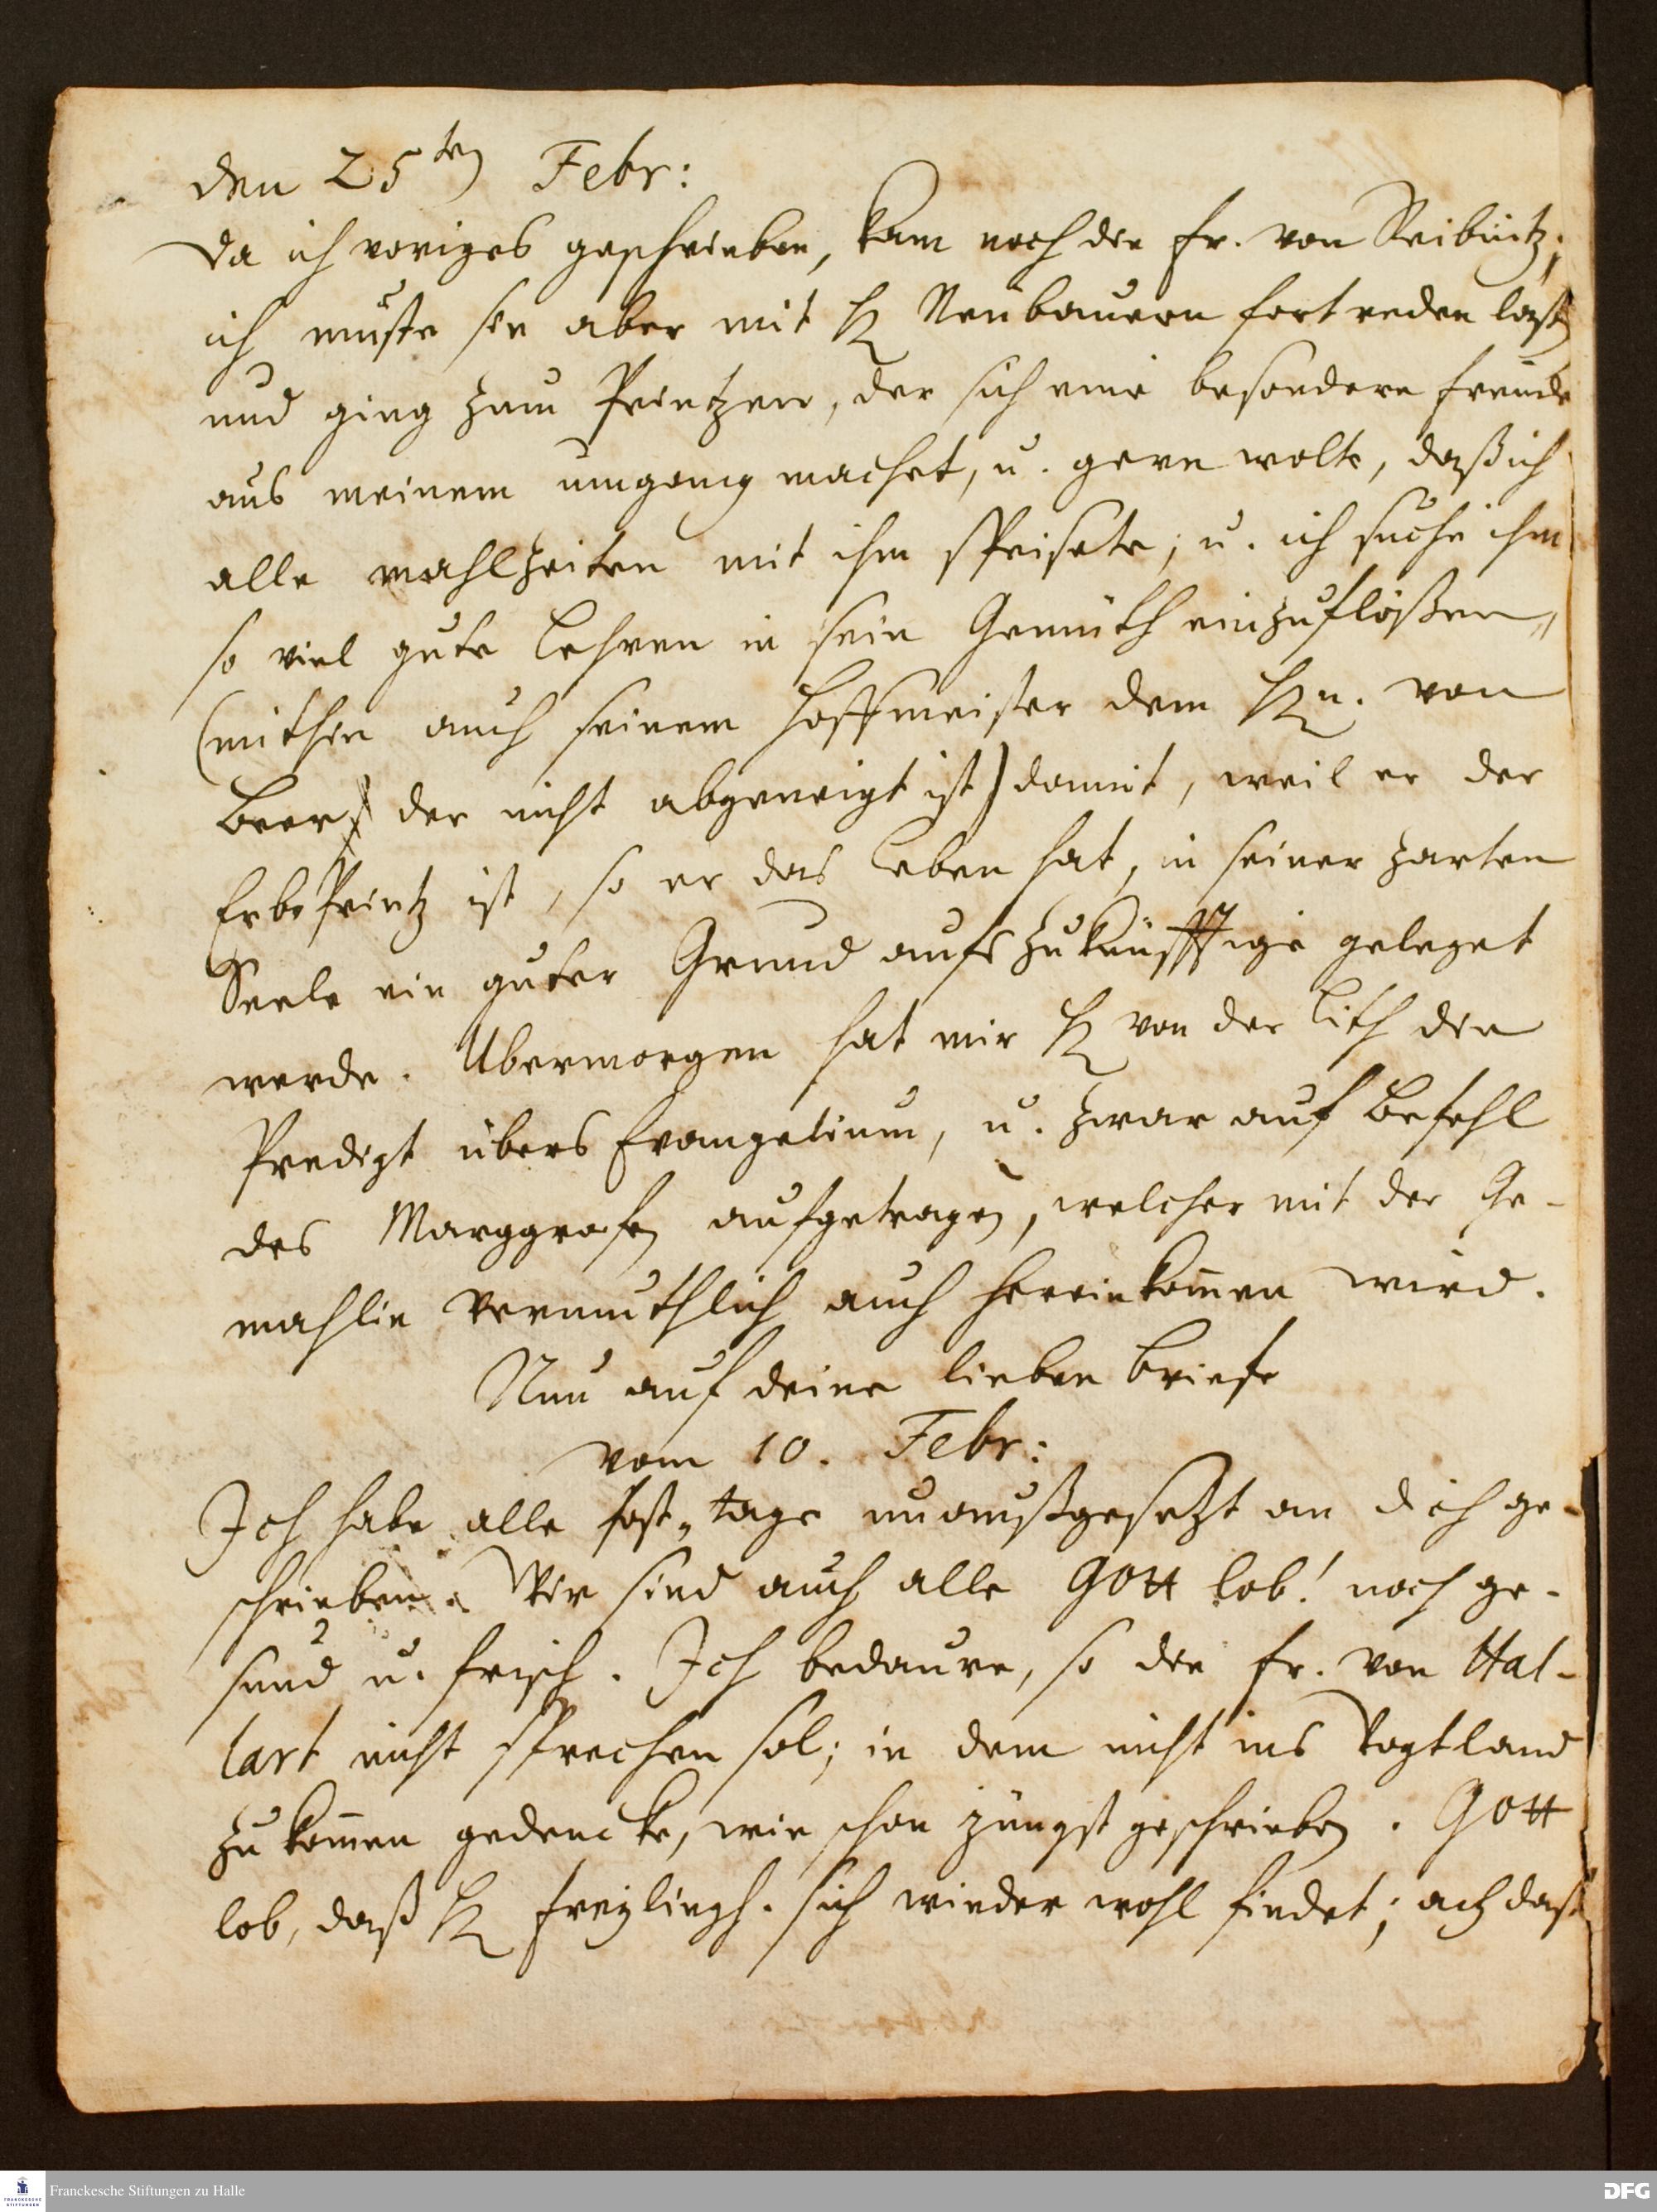 den 25ten Febr:
Da ich voriges geschrieben, kam noch die Fr. von Seibnitz;
ich muste sie aber mit H Neubauern fort reden lassen
und ging zum Printzen, der sich eine besondere freude
aus meinem umgang machet, u. gern wolte, daß ich
alle mahlzeiten mit ihm speisete; u. ich suche ihm
so viel gute Lehren in sein Gemüth einzuflößen,
(mithin auch seinem Hoffmeister dem Hn. von
Beer, der nicht abgeneigt ist) damit, weil er der
ErbePrintz ist, so er das Leben hat, in seiner zarten
Seele ein guter Grund aufs zukünfftige geleget
werde. Übermorgen hat mir H von der Lith die
Predigt übers Evangelium, u. zwar auf Befehl
des Marggrafen aufgetragen, welcher mit der Ge-
mahlin vermuthlich auch herein kom̄en wird.
Nun auf deine lieben Briefe
vom 10. Febr:
Ich habe alle Post-tage unaußgesetzt an dich ge-
schrieben. Wir sind auch alle GOtt lob! noch ge-
sund u. frisch. Ich bedaure, so die Fr. von Hal-
lart nicht sprechen sol; in dem nicht ins Vogtland
zu kom̄en gedencke, wie schon jüngst geschrieben. GOtt
lob, daß H Freylingh. sich wieder wohl findet; ach daß
Franckesche Stiftungen zu Halle
FRANCKESCHE STIFTUNGEN
DFG